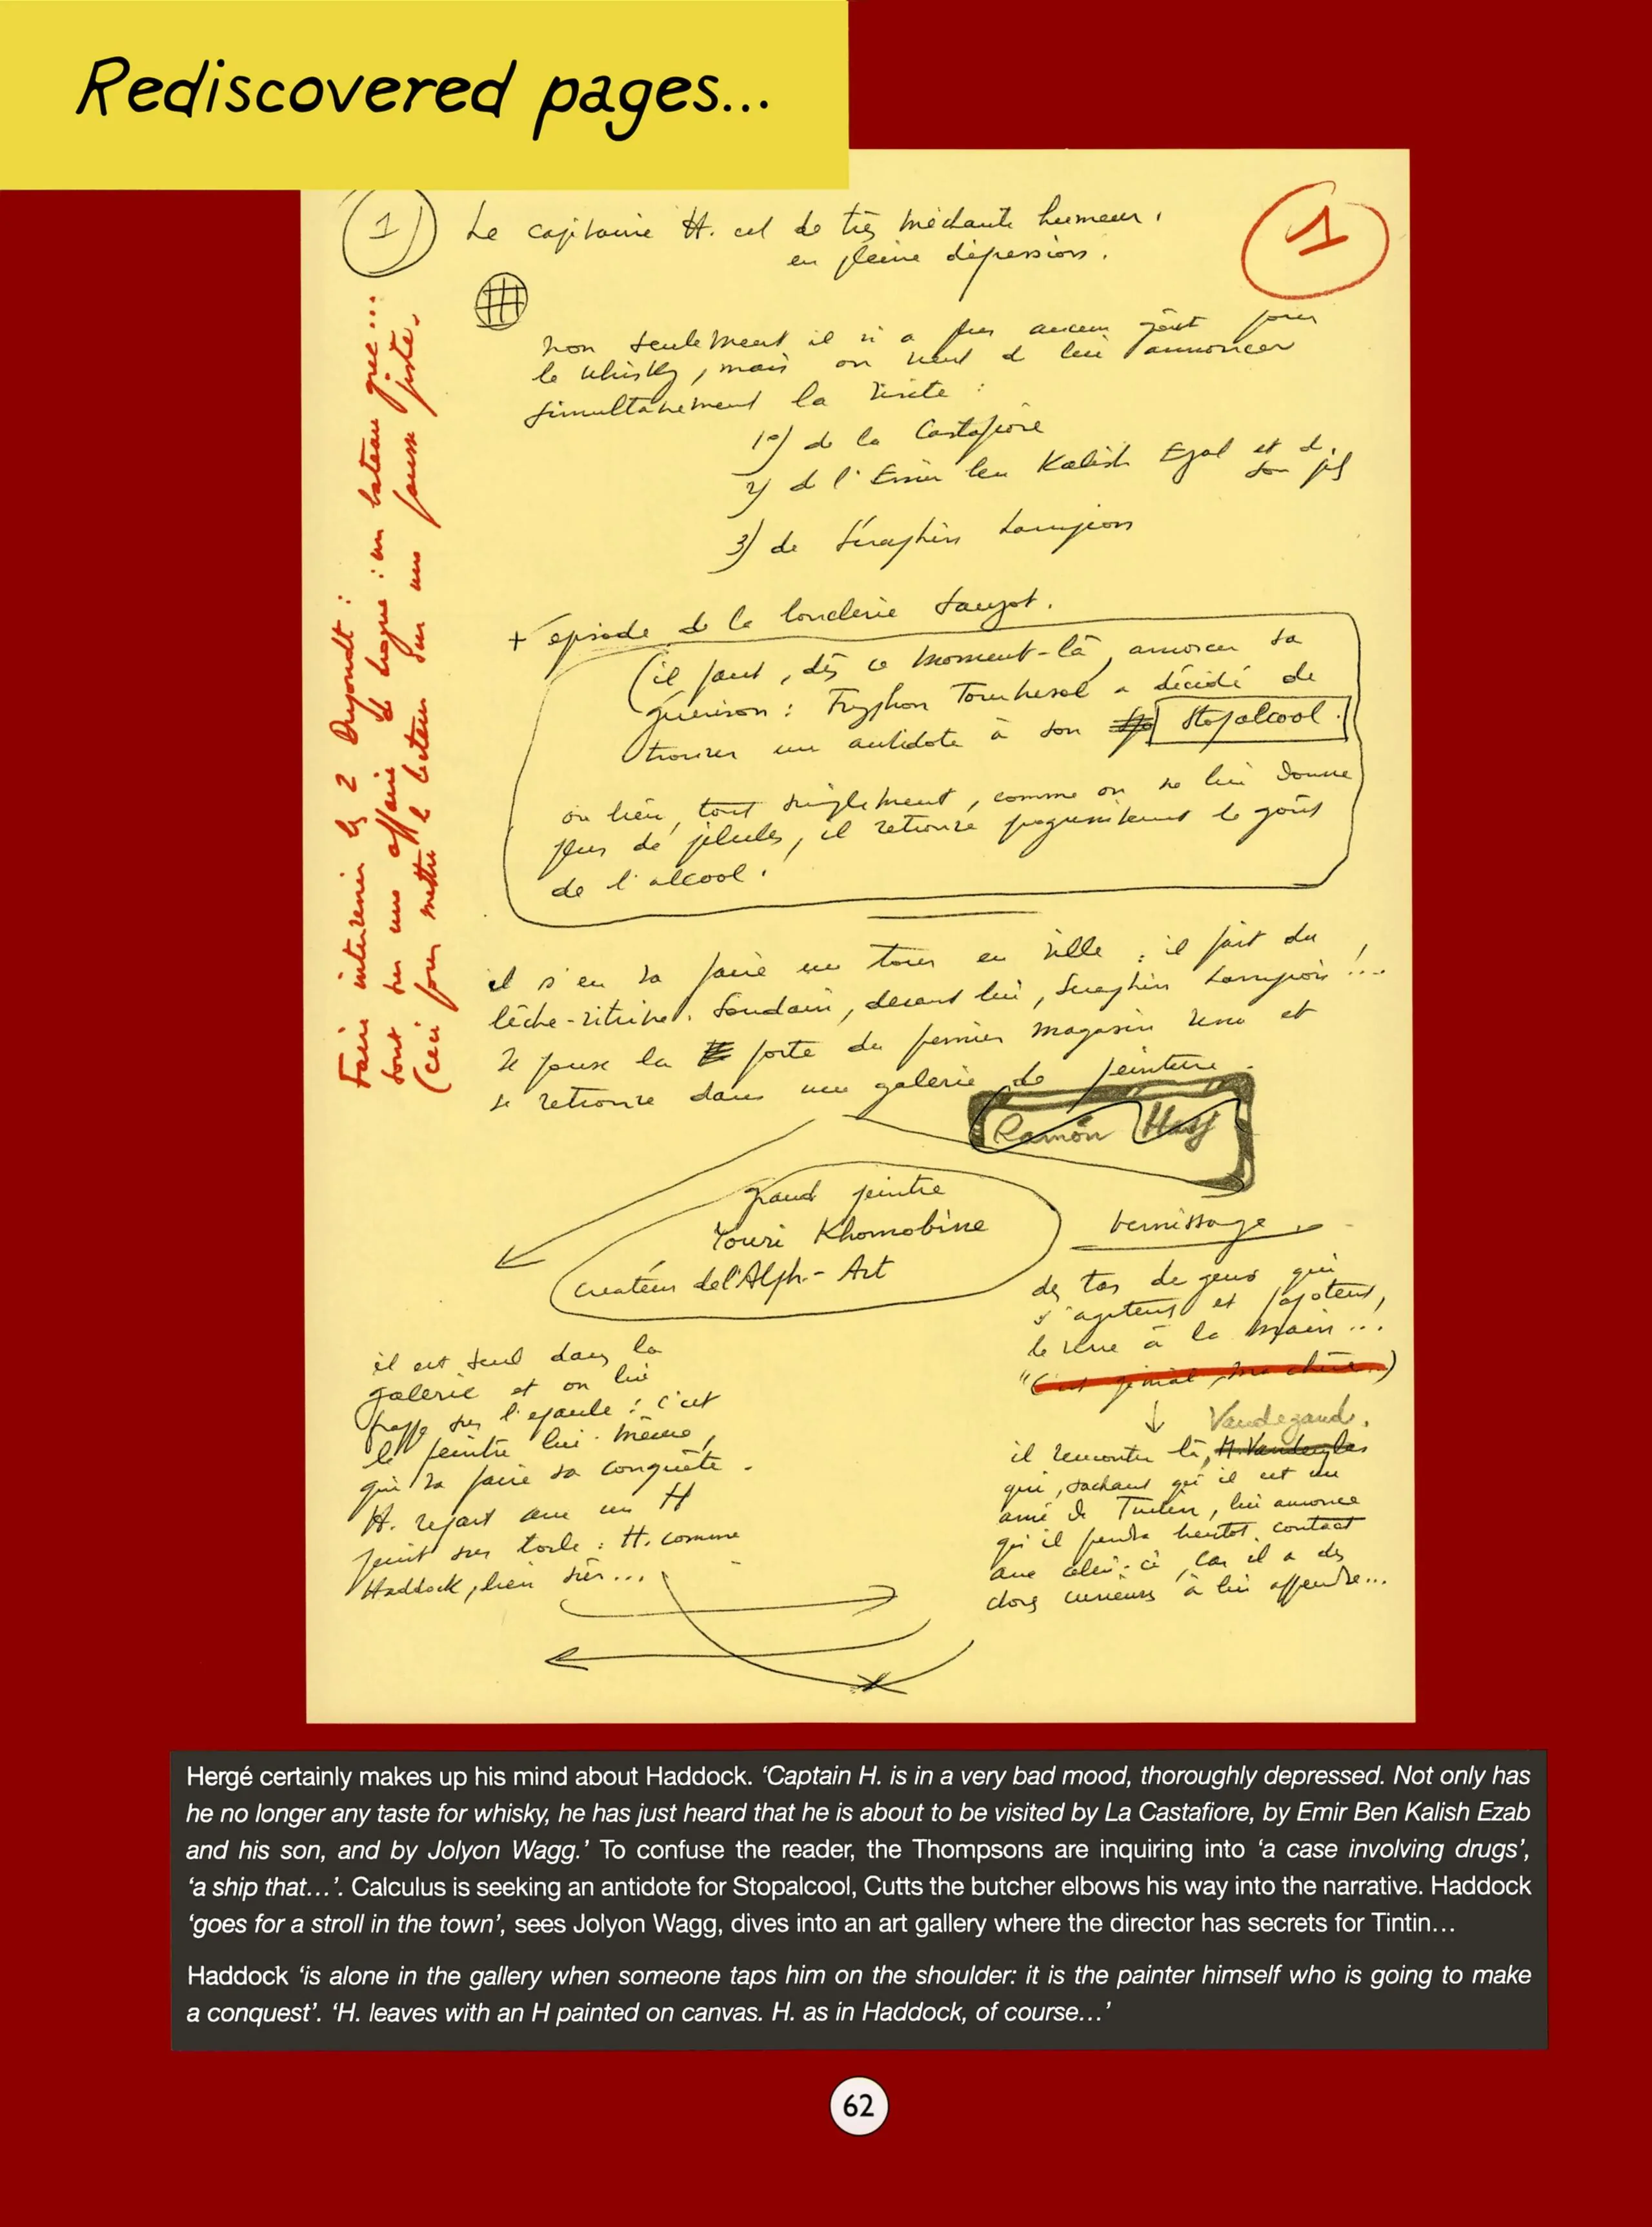 Rediscovered pages...
1) Le capitaine H. est de très méchante humeur,
en pleine dépression.
1
non seulement il n'a plus aucun goût pour
le whisky, mais on vient de lui annoncer
simultanément la visite :
1°) de la Castafiore
2) de l'Emir Ben Kalish Ezab et de son fils
3) de Séraphin Lampion
+ épisode de la boucherie Sanzot.
(il faut, dès ce moment-là, amorcer sa
guérison : Tryphon Tournesol a décidé de
trouver un antidote à son Stopalcool.
ou bien, tout simplement, comme on ne lui donne
plus de pilules, il retrouve progressivement le goût
de l'alcool.
Faire intervenir les 2 Dupondt :
sont sur une affaire de drogue : un bateau grec...
(ceci pour mettre le lecteur sur une fausse piste.
il s'en va faire un tour en ville : il fait du
lèche-vitrines. Soudain, devant lui, Séraphin Lampion !...
Il pousse la porte du premier magasin venu et
se retrouve dans une galerie de peinture.
Ramón Hasj
grand peintre
Youri Khomobine
créateur de l'Alph-Art
vernissage
des tas de gens qui
s'agitent et papotent,
le verre à la main...
"(C'est génial, ma chère...)
il est seul dans la
galerie et on lui
frappe sur l'épaule : c'est
le peintre lui-même,
qui va faire sa conquête.
H. repart avec un H
peint sur toile : H. comme
Haddock, bien sûr...
Vandezande.
il rencontre là,
qui, sachant qu'il est un
ami de Tintin, lui annonce
qu'il prendra bientôt contact
avec celui-ci, car il a des
choses curieuses à lui apprendre...
Hergé certainly makes up his mind about Haddock. ‘Captain H. is in a very bad mood, thoroughly depressed. Not only has
he no longer any taste for whisky, he has just heard that he is about to be visited by La Castafiore, by Emir Ben Kalish Ezab
and his son, and by Jolyon Wagg.’ To confuse the reader, the Thompsons are inquiring into ‘a case involving drugs’,
‘a ship that…’. Calculus is seeking an antidote for Stopalcool, Cutts the butcher elbows his way into the narrative. Haddock
‘goes for a stroll in the town’, sees Jolyon Wagg, dives into an art gallery where the director has secrets for Tintin…
Haddock ‘is alone in the gallery when someone taps him on the shoulder: it is the painter himself who is going to make
a conquest’. ‘H. leaves with an H painted on canvas. H. as in Haddock, of course…’
62